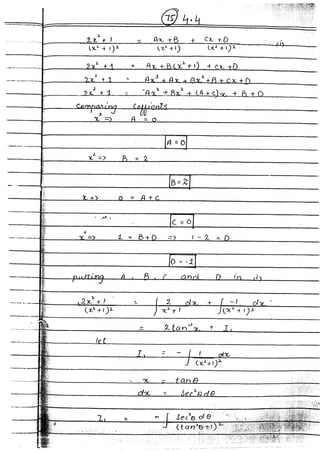 75 4.4
2x² + 1 / (x² + 1)² = Ax + B / (x² + 1) + Cx + D / (x² + 1)² (i)
2x² + 1 = Ax + B(x² + 1) + Cx + D
2x² + 1 = Ax³ + Ax + Bx² + B + Cx + D
2x² + 1 = Ax³ + Bx² + (A + C)x + B + D
Comparing Coffients
x³ => A = 0
A = 0
x² => B = 2
B = 2
x => 0 = A + C
C = 0
x° => 1 = B + D => 1 - 2 = D
D = -1
putting A, B, C and D in (i)
2x² + 1 / (x² + 1)² = ∫ 2 / x² + 1 dx + ∫ -1 / (x² + 1)² dx
= 2 tan⁻¹x + I₁
let
I₁ = - ∫ 1 / (x² + 1)² dx
x = tanθ
dx = Sec²θdθ
I₁ = - ∫ Sec²θ dθ / (tan²θ + 1)²